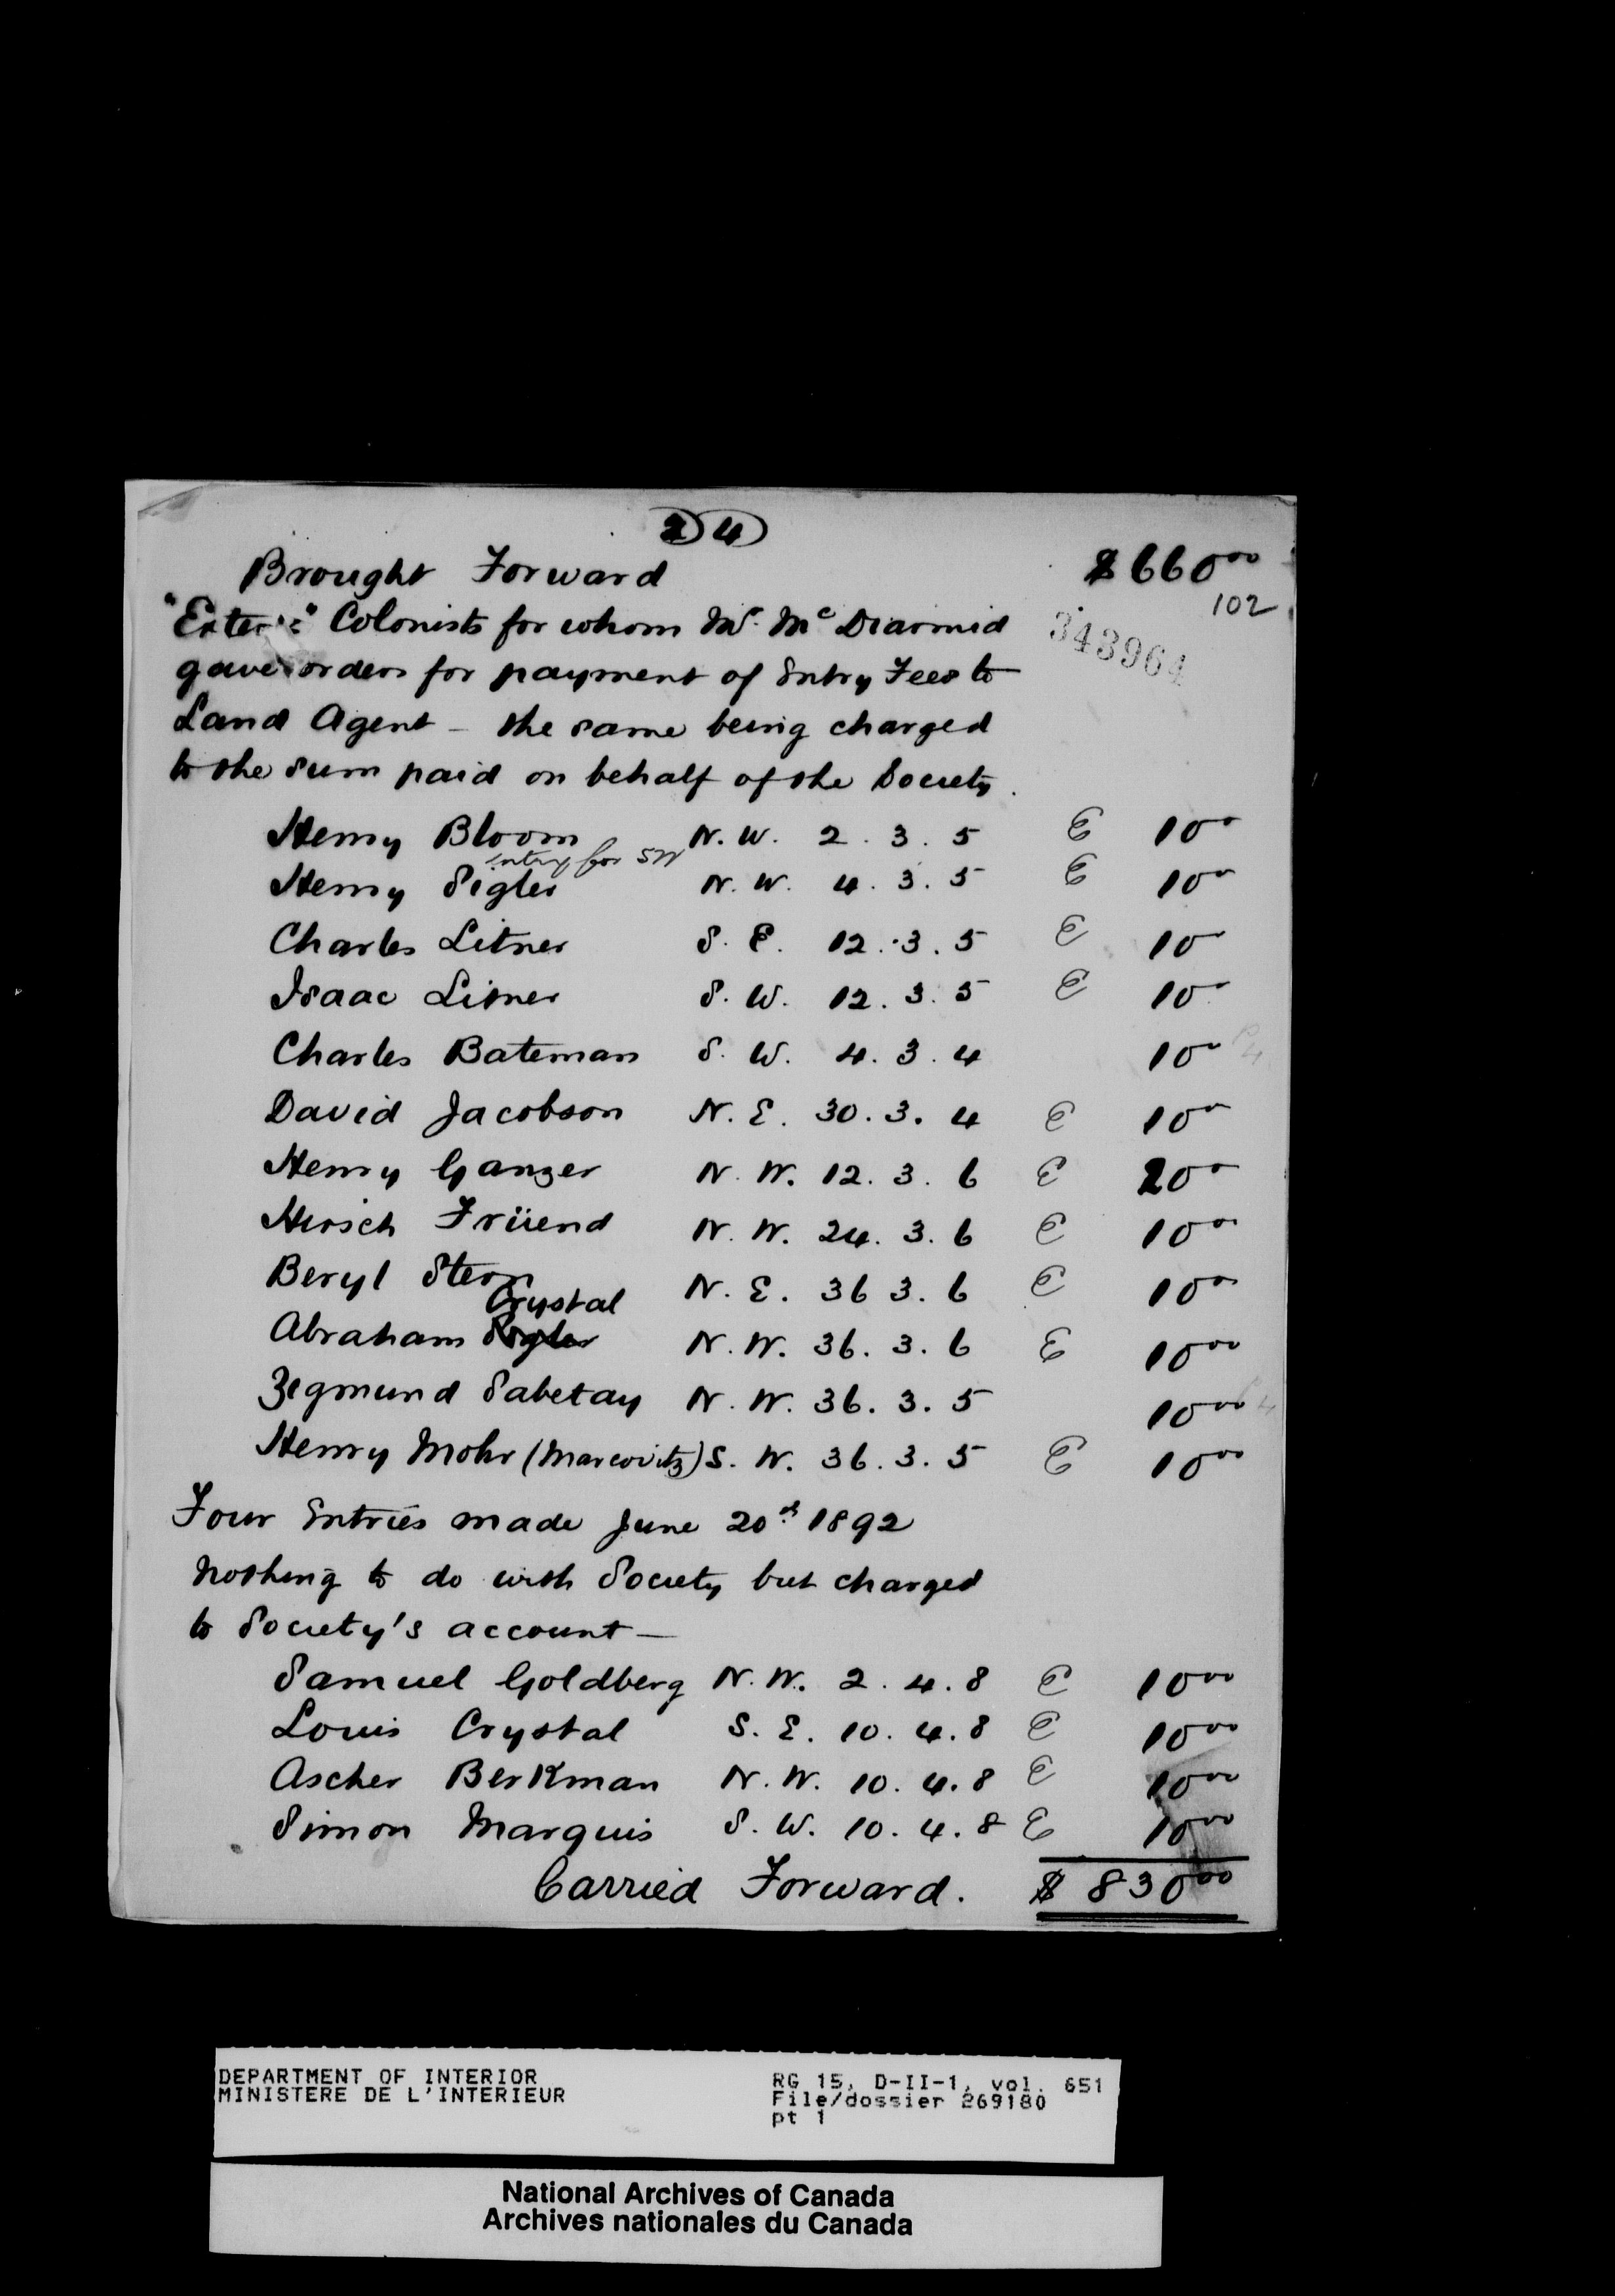 2 4
Brought Forward $660 00
102
343964
Colonists for whom Mr. McDiarmid
gave orders for payment of Entry Fees to
Land Agent – the same being charged
to the sum paid on behalf of the Society.
Henry Bloom N.W. 2. 3. 5 E 10 00
entry for SW
Henry Sigler N.W. 4. 3. 5 E 10 00
Charles Litner S.E. 12. 3. 5 E 10 00
Isaac Litner S.W. 12. 3. 5 E 10 00
Charles Bateman S.W. 4. 3. 4 10 00
David Jacobson N.E. 30. 3. 4 E 10 00
Henry Ganzer N.W. 12. 3. 6 E 20 00
Hirsch Früend N.W. 24. 3. 6 E 10 00
Beryl Stern N.E. 36 3. 6 E 10 00
Crystal
Abraham Sigler N.W. 36. 3. 6 E 10 00
Zegmund Sabetay N.W. 36. 3. 5 10 00
Henry Mohr (Marcovitz) S.W. 36. 3. 5 E 10 00
Four Entries made June 20th 1892
Nothing to do with Society but charged
to Society's account –
Samuel Goldberg N.W. 2. 4. 8 E 10 00
Louis Crystal S.E. 10. 4. 8 E 10 00
Ascher Berkman N.W. 10. 4. 8 E 10 00
Simon Marquis S.W. 10. 4. 8 E 10 00
Carried Forward. $ 830 00
DEPARTMENT OF INTERIOR RG 15, D-II-1, vol. 651
MINISTERE DE L'INTERIEUR File/dossier 269180
pt 1
National Archives of Canada
Archives nationales du Canada